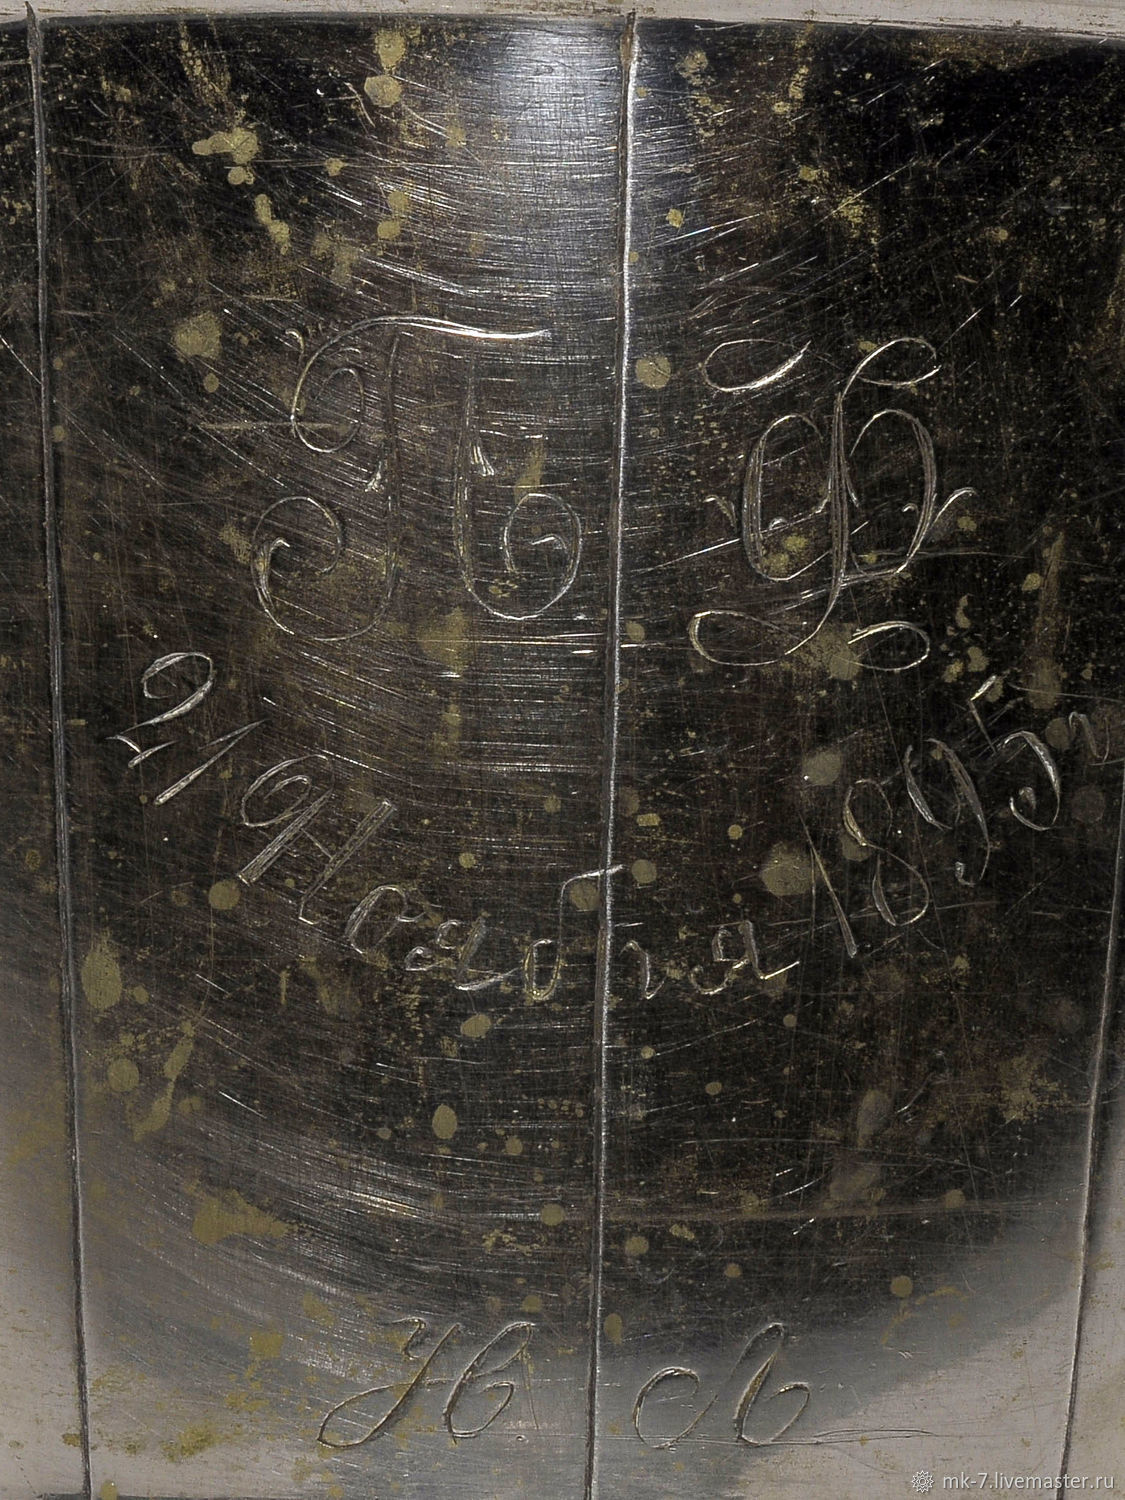 П Ф
21 Ноября 1895 г
И Л
mk-7.livemaster.ru